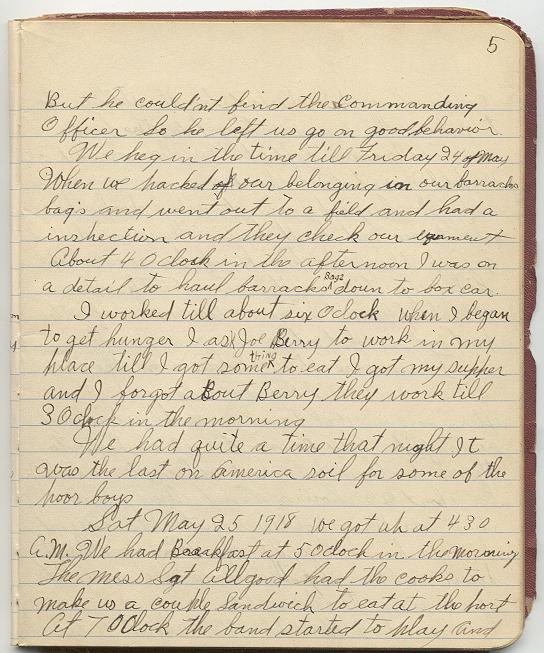 5
But he couldn't find the Commanding
Officer So he left us go on good behavior.
We beg in the time till Friday 24 of May
When we packed of our belonging in our barracks
bags and went out to a field and had a
inspection and they check our
About 4 O clock in the afternoon I was on
a detail to haul barracks Bags down to box car.
I worked till about six O clock when I began
to get hunger I ask Joe Berry to work in my
place till I got some thing to eat I got my supper
and I forgot about Berry they work till
3 O clock in the morning
We had quite a time that night It
was the last on America soil for some of the
poor boys
Sat May 25 1918 we got up at 4 30
A.M. We had Breakfast at 5 O clock in the morning
The mess Sgt Allgood had the cooks to
make us a couple Sandwich to eat at the port
At 7 O Clock the band started to play and